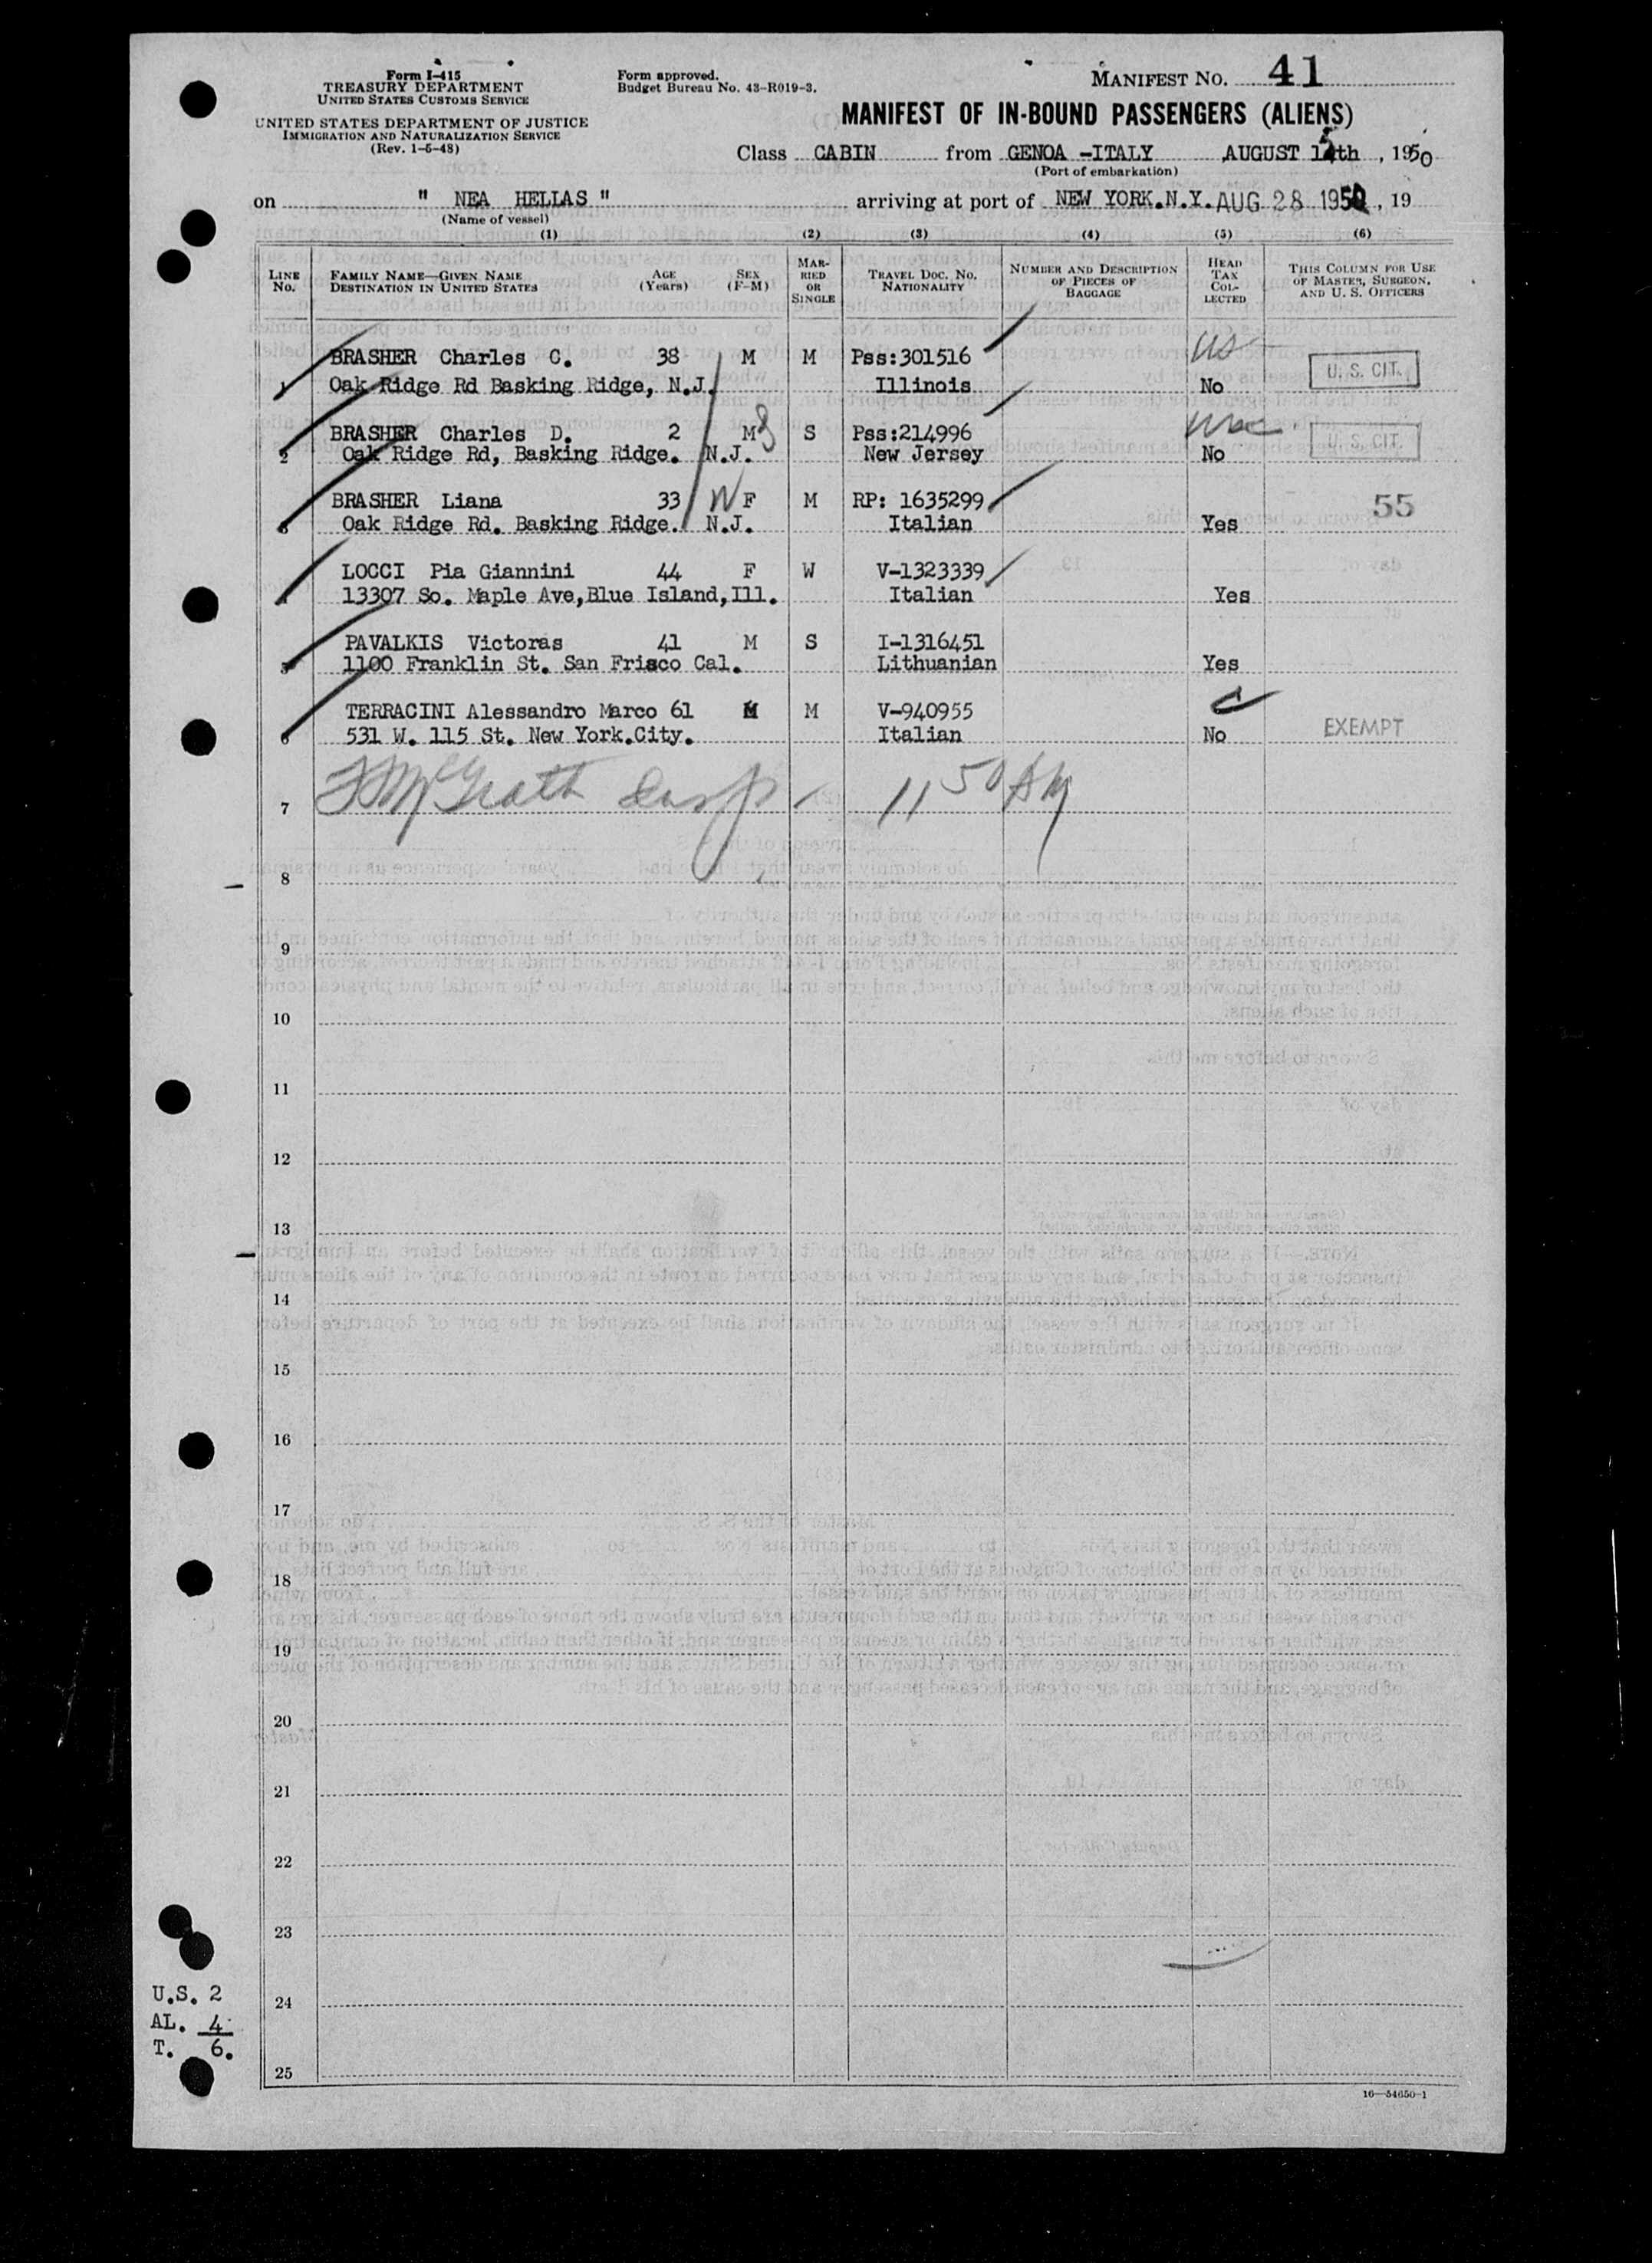 Form I-415
TREASURY DEPARTMENT
UNITED STATES CUSTOMS SERVICE
UNITED STATES DEPARTMENT OF JUSTICE
IMMIGRATION AND NATURALIZATION SERVICE
(Rev. 1-5-48)
Form approved.
Budget Bureau No. 43-R019-3.
MANIFEST NO. 41
MANIFEST OF IN-BOUND PASSENGERS (ALIENS)
Class CABIN from GENOA -ITALY AUGUST 15th , 1950
(Port of embarkation)
on " NEA HELLAS " arriving at port of NEW YORK.N.Y. AUG 28 1950 , 19
(Name of vessel)
(1) (2) (3) (4) (5) (6)
LINE No. FAMILY NAME—GIVEN NAME DESTINATION IN UNITED STATES AGE (Years) SEX (F-M) MARRIED OR SINGLE TRAVEL DOC. NO. NATIONALITY NUMBER AND DESCRIPTION OF PIECES OF BAGGAGE HEAD TAX COLLECTED THIS COLUMN FOR USE OF MASTER, SURGEON, AND U. S. OFFICERS
BRASHER Charles C. 38 M M Pss:301516 U. S. CIT.
1 Oak Ridge Rd Basking Ridge, N.J. Illinois No
BRASHER Charles D. 2 M S Pss:214996 U. S. CIT.
2 Oak Ridge Rd, Basking Ridge. N.J. New Jersey No
BRASHER Liana 33 F M RP: 1635299 55
3 Oak Ridge Rd. Basking Ridge. N.J. Italian Yes
LOCCI Pia Giannini 44 F W V-1323339
4 13307 So. Maple Ave,Blue Island,Ill. Italian Yes
PAVALKIS Victoras 41 M S I-1316451
5 1100 Franklin St. San Frisco Cal. Lithuanian Yes
TERRACINI Alessandro Marco 61 M M V-940955
6 531 W. 115 St. New York.City. Italian No EXEMPT
7 McGrath Insp 11 50 AM
8
9
10
11
12
13
14
15
16
17
18
19
20
21
22
23
24
25
U.S. 2
AL. 4
T. 6.
16—54650-1